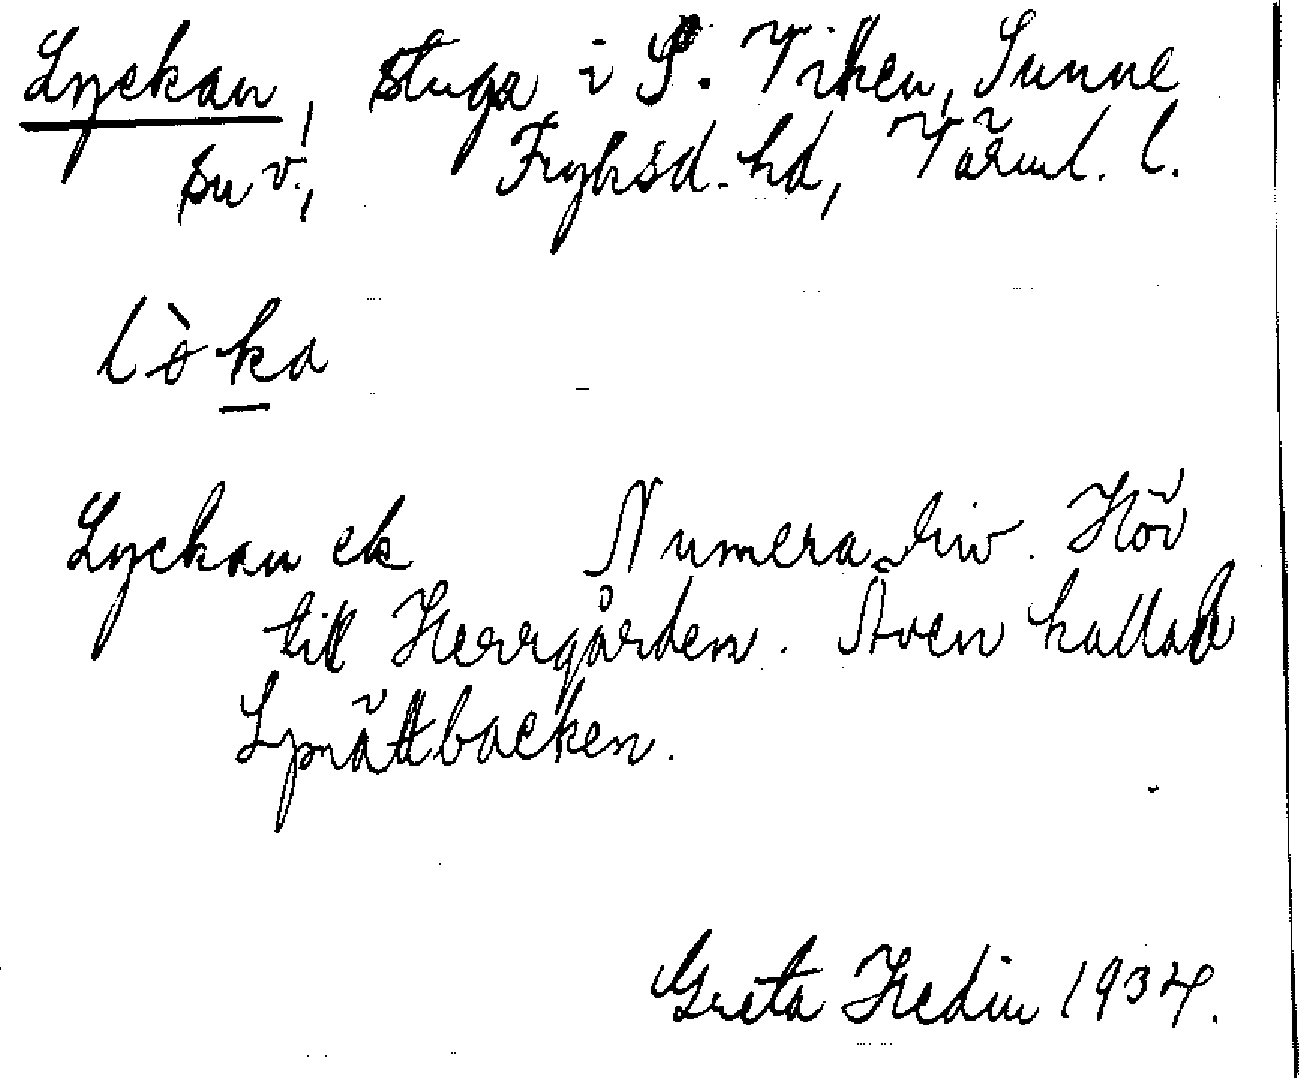 Lyckan, stuga i S. Viken, Sunne
sn v., Fryksd. hd, Värml. l.
lø̀ka
Lyckan ek Numera riv. Hör
till Herrgården. Även kallad
Sprättbacken.
Greta Hedin 1934.